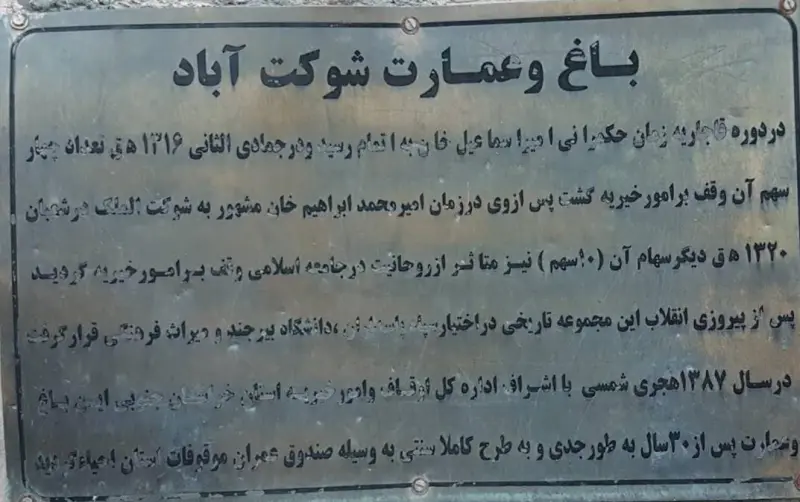 باغ وعمارت شوکت آباد
دردوره قاجاریه زمان حکمرانی امیراسماعیل خان به اتمام رسید ودرجمادی الثانی ۱۳۱۶ ه ق تعداد چهار
سهم آن وقف برامورخیریه گشت پس ازوی درزمان امیرمحمد ابراهیم خان مشهور به شوکت الملک درشعبان
۱۳۲۰ ه ق دیگرسهام آن (۱۰سهم) نیز متاثر ازروحانیت درجامعه اسلامی وقف برامورخیریه گردید
پس از پیروزی انقلاب این مجموعه تاریخی دراختیارسپاه پاسداران ،دانشگاه بیرجند و میراث فرهنگی قرارگرفت
درسال ۱۳۸۷هجری شمسی با اشراف اداره کل اوقاف وامورخیریه استان خراسان جنوبی این باغ
وعمارت پس از۳۰سال به طورجدی و به طرح کاملا سنتی به وسیله صندوق عمران موقوفات استان احیاءگردید